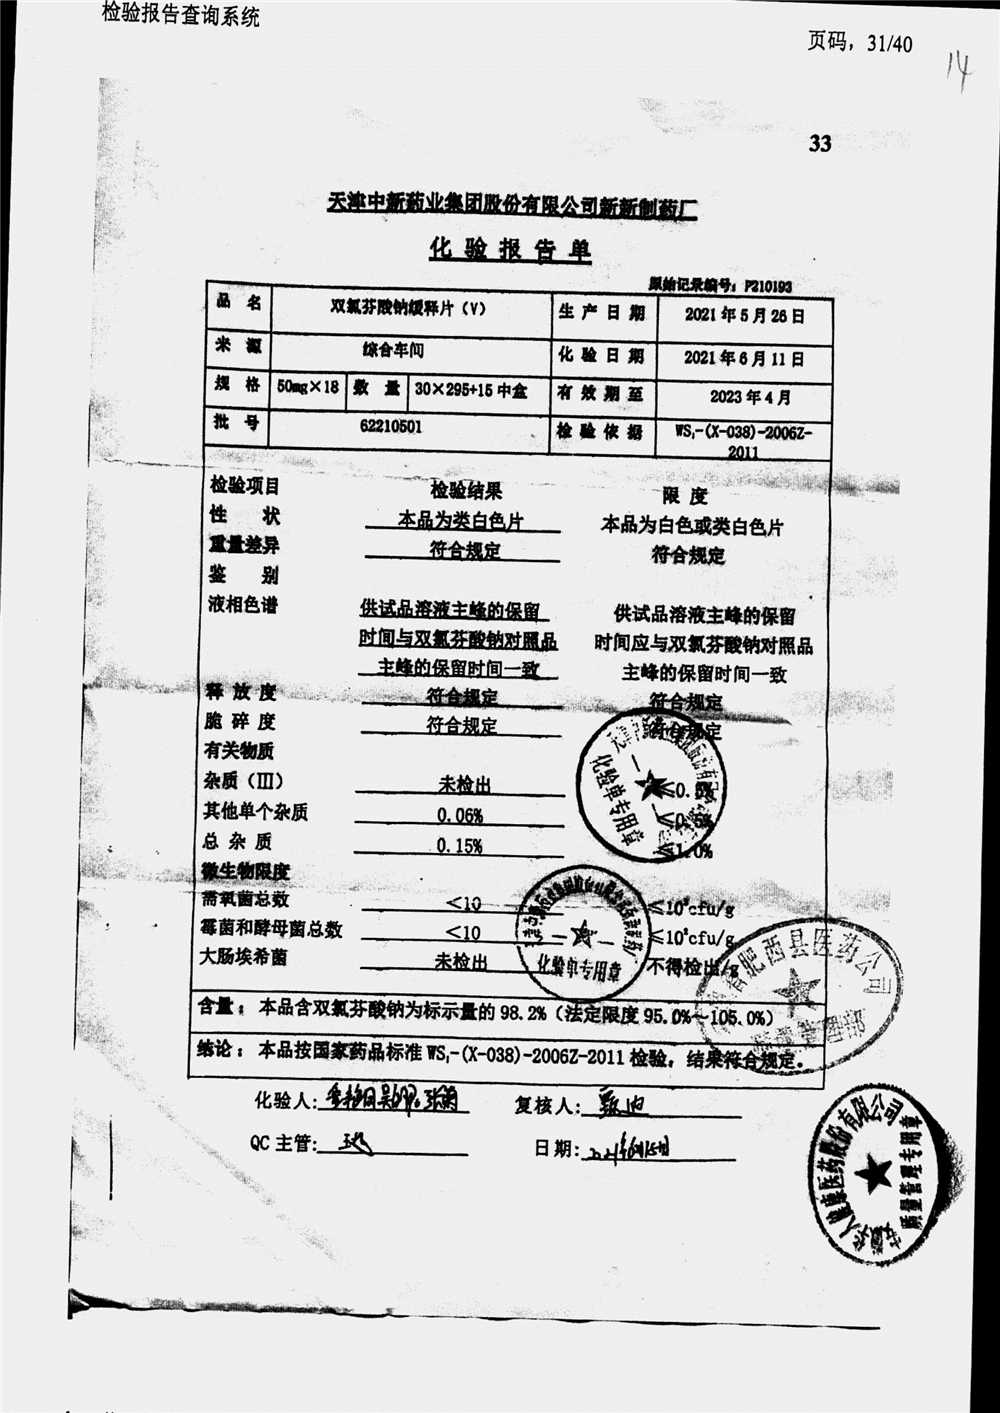 检验报告查询系统
页码，31/40
14
33
天津中新药业集团股份有限公司新新制药厂
化验报告单
原始记录编号：P210193
品名 双氯芬酸钠缓释片（V） 生产日期 2021年5月26日
来源 综合车间 化验日期 2021年6月11日
规格 50mg×18 数量 30×295+15中盒 有效期至 2023年4月
批号 62210501 检验依据 WS₁-(X-038)-2006Z-
2011
检验项目 检验结果 限度
性状 本品为类白色片 本品为白色或类白色片
重量差异 符合规定 符合规定
鉴别
液相色谱 供试品溶液主峰的保留 供试品溶液主峰的保留
时间与双氯芬酸钠对照品 时间应与双氯芬酸钠对照品
主峰的保留时间一致 主峰的保留时间一致
释放度 符合规定 符合规定
脆碎度 符合规定 符合规定
有关物质
杂质（Ⅲ） 未检出
其他单个杂质 0.06%
总杂质 0.15% ≤1.0%
微生物限度
需氧菌总数 <10 ≤10³cfu/g
霉菌和酵母菌总数 <10 ≤10²cfu/g
大肠埃希菌 未检出 不得检出/g
含量：本品含双氯芬酸钠为标示量的98.2%（法定限度95.0%~105.0%）
结论：本品按国家药品标准WS₁-(X-038)-2006Z-2011检验，结果符合规定。
化验人： 复核人：
QC主管： 日期：
化验单专用章
化验单专用章
肥西县医药公司
安徽华人健康医药股份有限公司
质量管理专用章